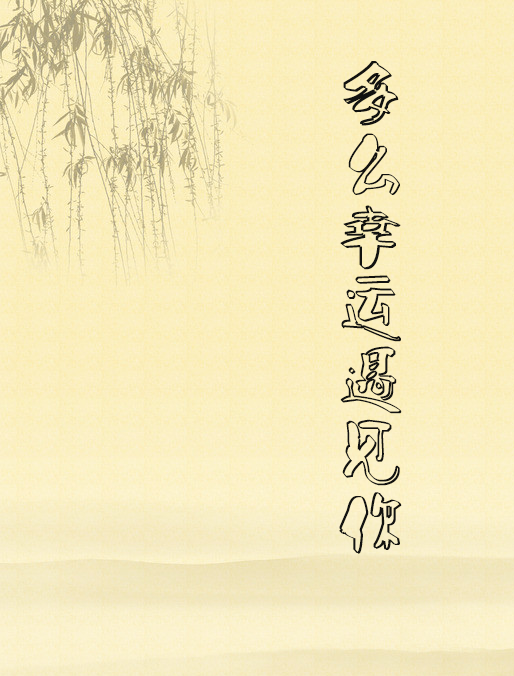 多么幸运遇见你